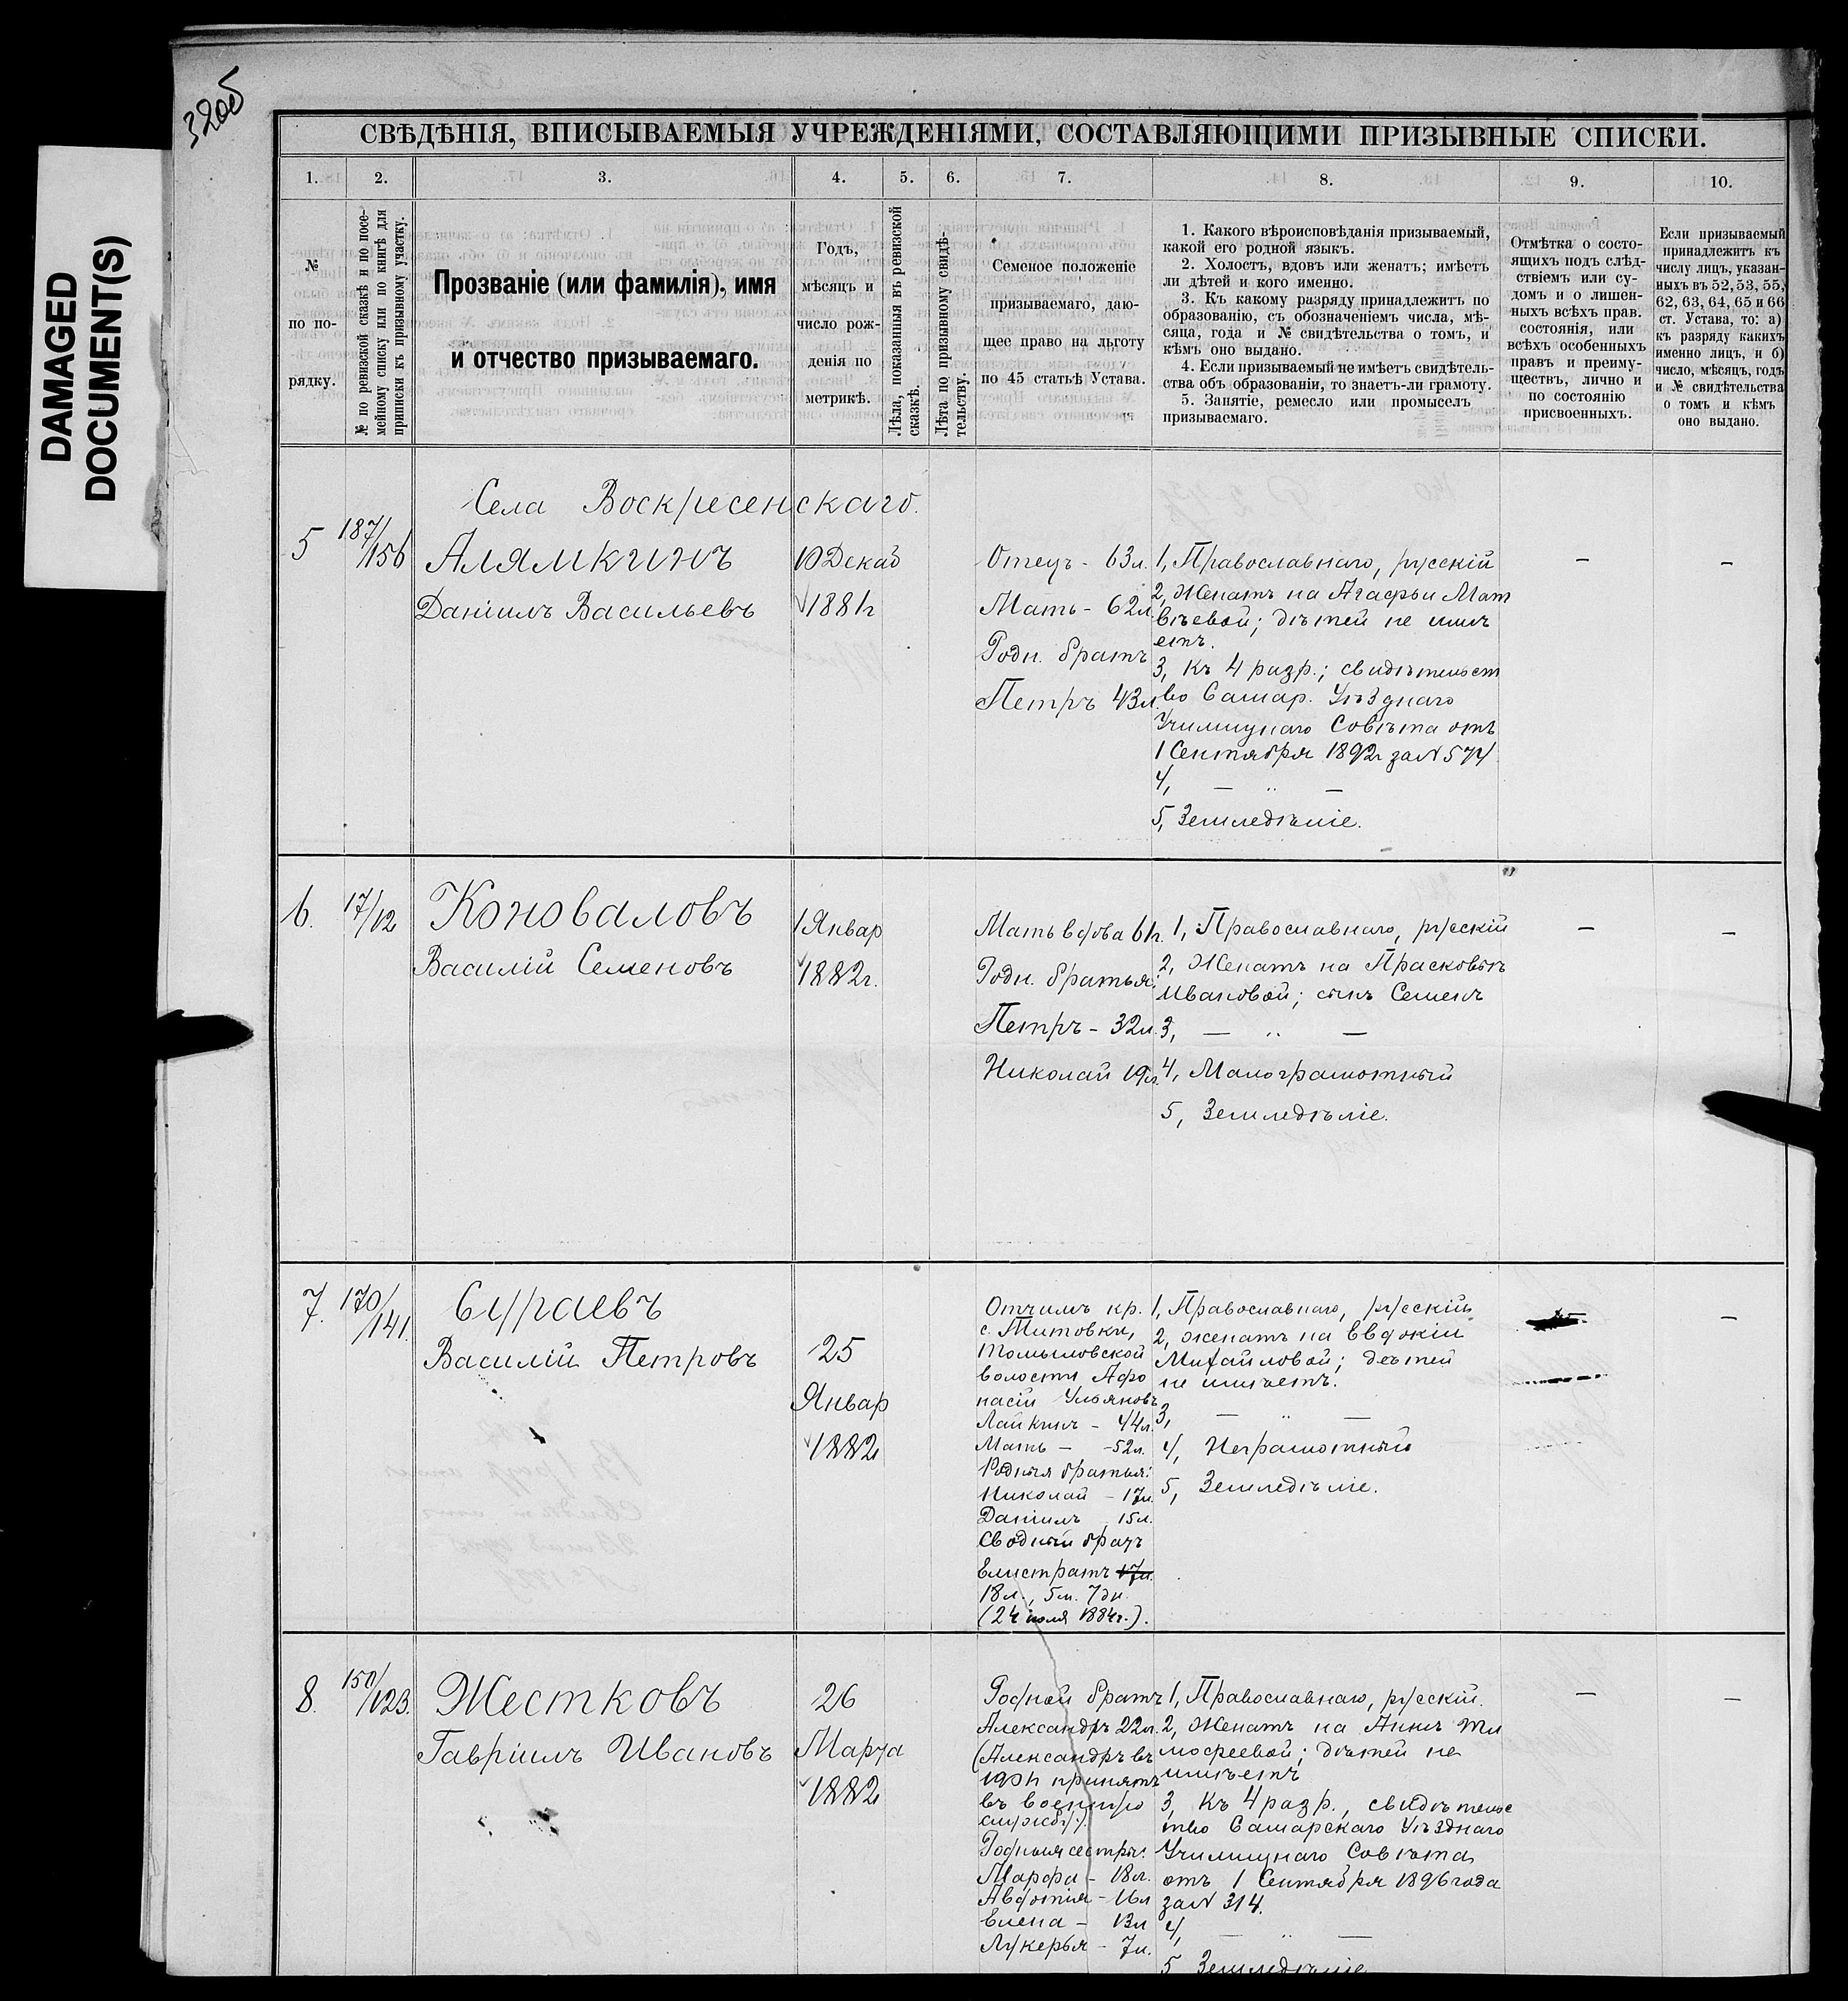 320б
DAMAGED
DOCUMENT(S)
СВѢДѢНІЯ, ВПИСЫВАЕМЫЯ УЧРЕЖДЕНІЯМИ, СОСТАВЛЯЮЩИМИ ПРИЗЫВНЫЕ СПИСКИ.
1. 2. 3. 4. 5. 6. 7. 8. 9. 10.
№
по по-
рядку.
№ по ревизской сказкѣ и по посе-
мейному списку или по книгѣ для
приписки къ призывному участку.
Прозваніе (или фамилія), имя
и отчество призываемаго.
Годъ,
мѣсяцъ и
число рож-
денія по
метрикѣ.
Лѣта, показанныя въ ревизской
сказкѣ.
Лѣта по призывному свидѣ-
тельству.
Семеное положеніе
призываемаго, даю-
щее право на льготу
по 45 статьѣ Устава.
1. Какого вѣроисповѣданія призываемый,
какой его родной языкъ.
2. Холостъ, вдовъ или женатъ; имѣетъ
ли дѣтей и кого именно.
3. Къ какому разряду принадлежитъ по
образованію, съ обозначеніемъ числа, мѣ-
сяца, года и № свидѣтельства о томъ, и
кѣмъ оно выдано.
4. Если призываемый не имѣетъ свидѣтель-
ства объ образованіи, то знаетъ-ли грамоту.
5. Занятіе, ремесло или промыселъ
призываемаго.
Отмѣтка о состо-
ящихъ подъ слѣд-
ствіемъ или су-
домъ и о лишен-
ныхъ всѣхъ прав.
состоянія, или
всѣхъ особенныхъ
правъ и преиму-
ществъ, лично и
по состоянію
присвоенныхъ.
Если призываемый
принадлежитъ къ
числу лицъ, указан-
ныхъ въ 52, 53, 55,
62, 63, 64, 65 и 66
ст. Устава, то: а)
къ разряду какихъ
именно лицъ, и б)
число, мѣсяцъ, годъ
и № свидѣтельства
о томъ и кѣмъ
оно выдано.
Села Воскресенскаго.
5
187/156
Алямкинъ
Даніилъ Васильевъ
10 Декаб
1881г
Отецъ - 63л.
Мать - 62л
Родн. братъ
Петръ 43л.
1, Православнаго, русскій
2, Женатъ на Агафьи Мат
вѣевой; дѣтей не имѣ
етъ.
3, Къ 4 разр.; свидѣтельст
во Самар. Уѣзднаго
Училищнаго Совѣта отъ
1 Сентября 1892г за № 574
4, — " —
5, Земледѣліе.
—
—
6.
17/12
Коноваловъ
Василій Семеновъ
1 Январ
1882г.
Мать вдова 61г.
Родн. братья:
Петръ - 32л.
Николай 19л.
1, Православнаго, русскій
2, Женатъ на Прасковьѣ
Ивановой; сынъ Семенъ
3, — " —
4, Малограмотный
5, Земледѣліе.
—
—
7.
170/141.
Сураевъ
Василій Петровъ
25
Январ
1882
Отчимъ кр.
с. Титовки,
Томыловской
волости Афо
насій Ульяновъ
Лайкинъ - 44л.
Мать - 52л.
Родныя братья:
Николай - 17л.
Даніилъ 15л.
Сводный братъ
Елистратъ 17л.
18л., 5м. 7дн.
(24 июля 1884г.).
1, Православнаго, русскій
2, женатъ на Евдокіи
Михайловой; дѣтей
не имѣетъ.
3, — " —
4, Неграмотный
5, Земледѣліе.
—
8.
150/123.
Жестковъ
Гавріилъ Ивановъ
26
Марта
1882
Родной братъ
Александръ 22л.
(Александръ въ
190 г принятъ
въ военную
службу).
Родныя сестры:
Марфа - 18л.
Авдотія - 16л
Елена - 13л
Лукерья - 7л.
1, Православнаго, русскій.
2, Женатъ на Аннѣ Ти
мофеевой; дѣтей не
имѣетъ
3, Къ 4 разр., свидѣтельс
тво Самарскаго Уѣзднаго
Училищнаго Совѣта
отъ 1 Сентября 1896 года
за № 314.
4, — " —
5 Земледѣліе
—
—